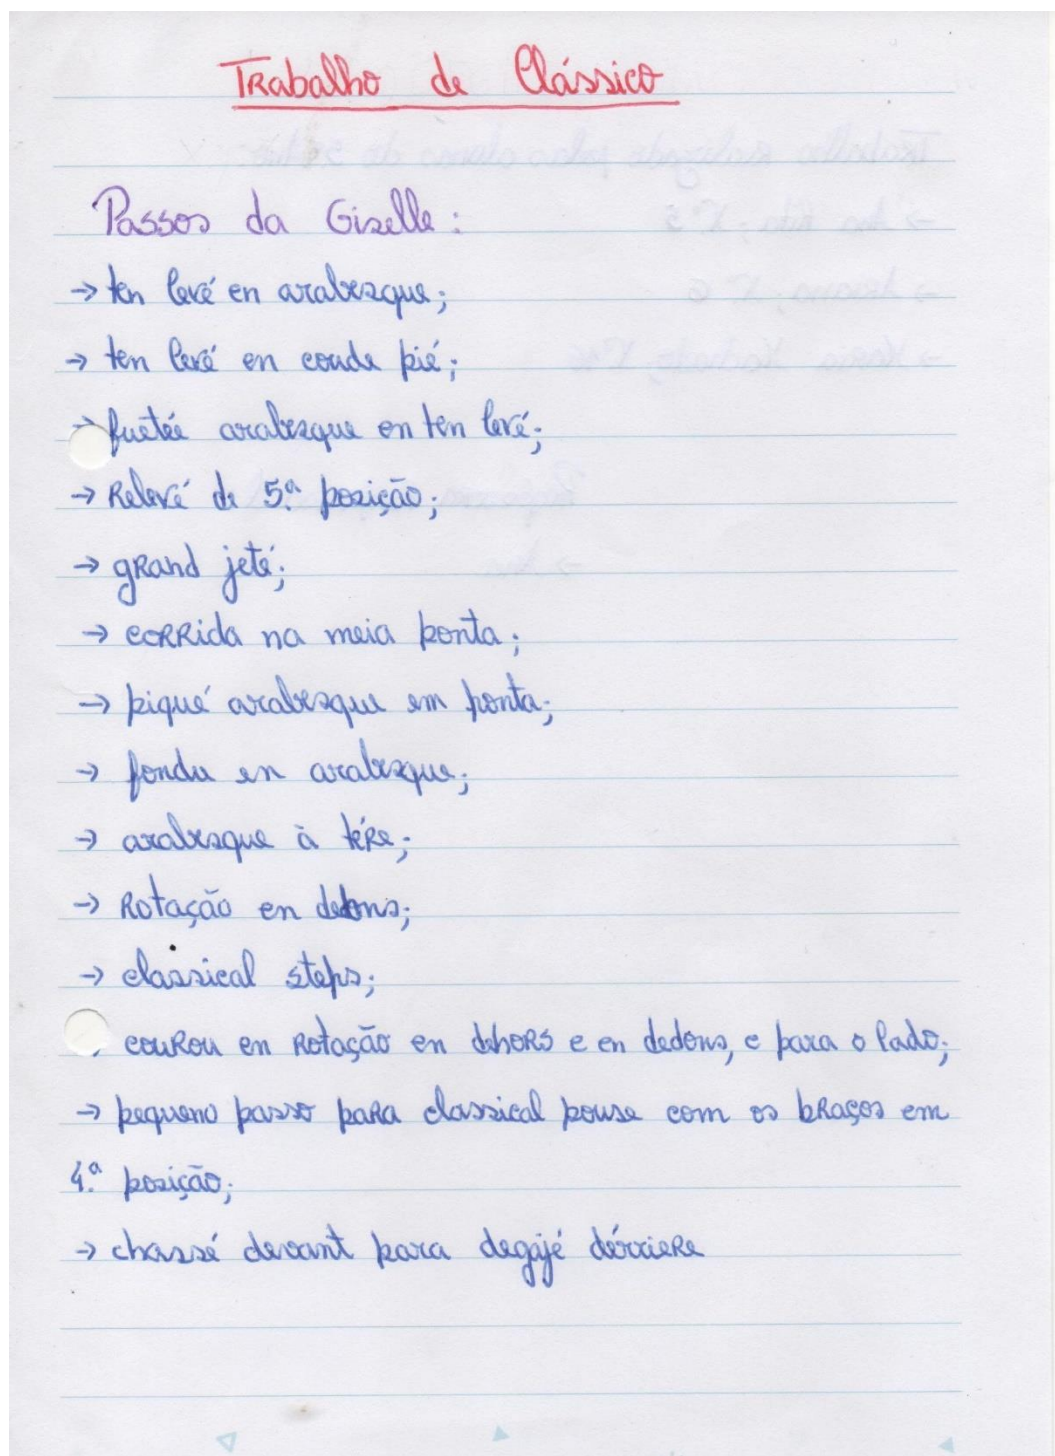 Trabalho de Clássico
Passos da Giselle:
→ ten levé en arabesque;
→ ten levé en coude pié;
→ fuetée arabesque en ten levé;
→ Relevé de 5.ª posição;
→ grand jeté;
→ corrida na meia ponta;
→ piqué arabesque em ponta;
→ fondu en arabesque;
→ arabesque à tére;
→ Rotação en dedons;
→ classical steps;
couRou en Rotação en dehors e en dedons, e para o lado;
→ pequeno passo para classical pouse com os braços em
4.ª posição;
→ chassé devant para degajé dérriere